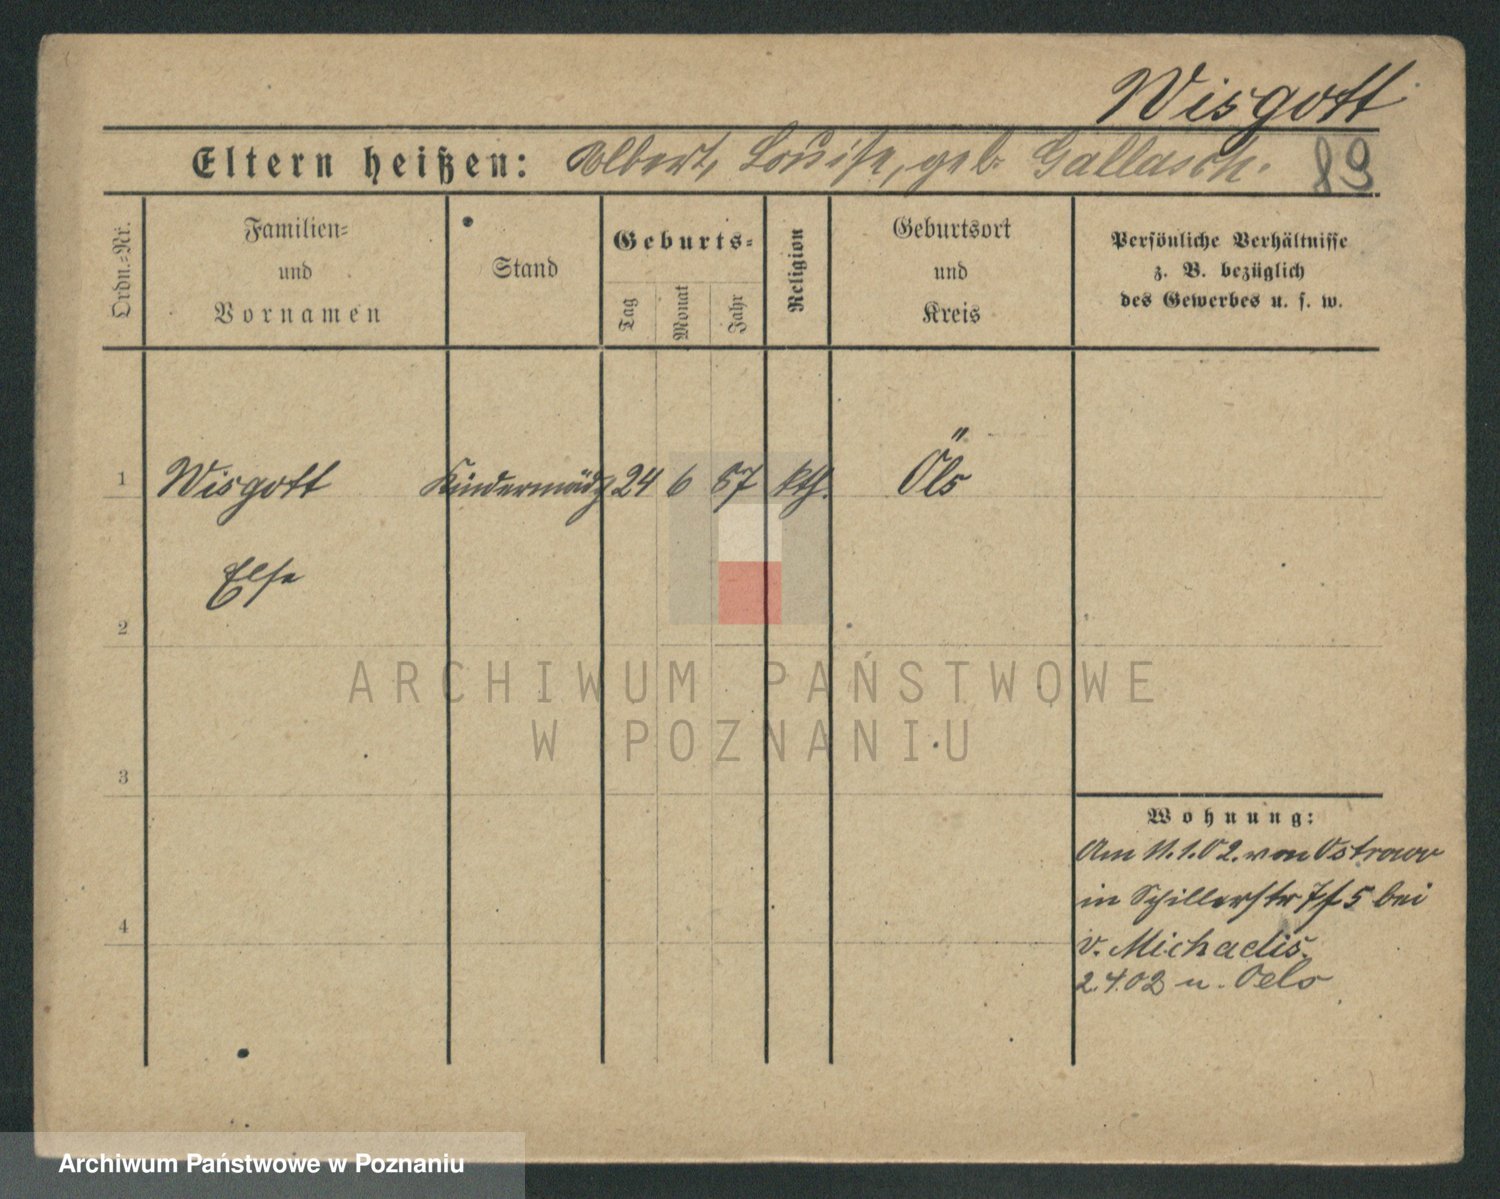 Wisgott
Eltern heißen: Albert, Louise, geb. Gallasch. 89
Ordn.-Nr.
Familien-
und
Vornamen
Stand
Geburts-
Tag
Monat
Jahr
Religion
Geburtsort
und
Kreis
Persönliche Verhältnisse
z. B. bezüglich
des Gewerbes u. s. w.
1 Wisgott Kindermädch 24 6 87 kth. Öls
Else
2
ARCHIWUM PAŃSTWOWE
W POZNANIU
3
Wohnung:
Am 11.1.02. von Ostrowo
in Schillerstr 5 bei
4
v. Michaelis.
2.4.02 n. Oels
Archiwum Państwowe w Poznaniu